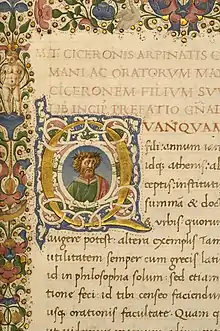 M·T· CICERONIS ARPINATIS C
MANI AC ORATORVM MA
CICERONEM FILIVM SVV
INCIP PREFATIO GÑAL
QVANQVA
fili annum i
idq; athenis ab
ceptis institut
summa & doc
& urbis quorū
augere potest: altera exemplis Tam
utilitatem semper cum grecis latin
id in philosophia solum: sed etiam
tione feci id tibi censeo faciendu
usq; orationis facultate Quam q